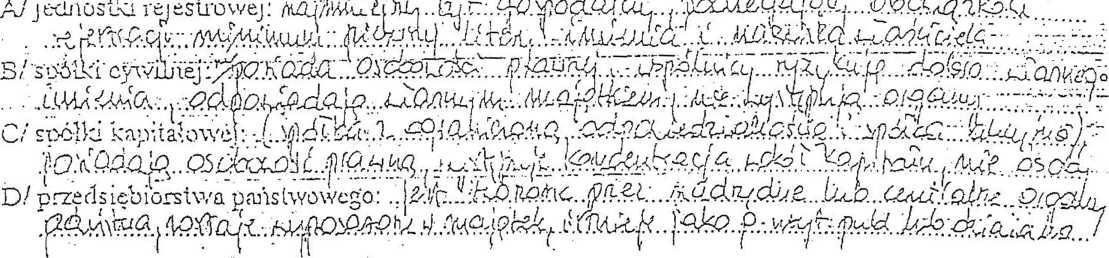 A/ jednostki rejestrowej: najmniejszy byt gospodarczy podlegający obowiązkowi
rejestracji minimum pierwszy liter imienia i nazwiska właściciela
B/ spółki cywilnej: posiada osobowość prawną, wspólnicy ryzykują dobra własnego
imienia, odpowiadają własnym majątkiem, nie występują organy
C/ spółki kapitałowej: (spółka z ograniczoną odpowiedzialnością i spółka akcyjna)
posiadają osobowość prawną, występuje koncentracja wokół kapitału, nie osoby
D/ przedsiębiorstwa państwowego: jest tworzone przez naczelne lub centralne organy
państwa, zostaje wyposażone w majątek, istnieje jako p. użyt. publ. lub działa na